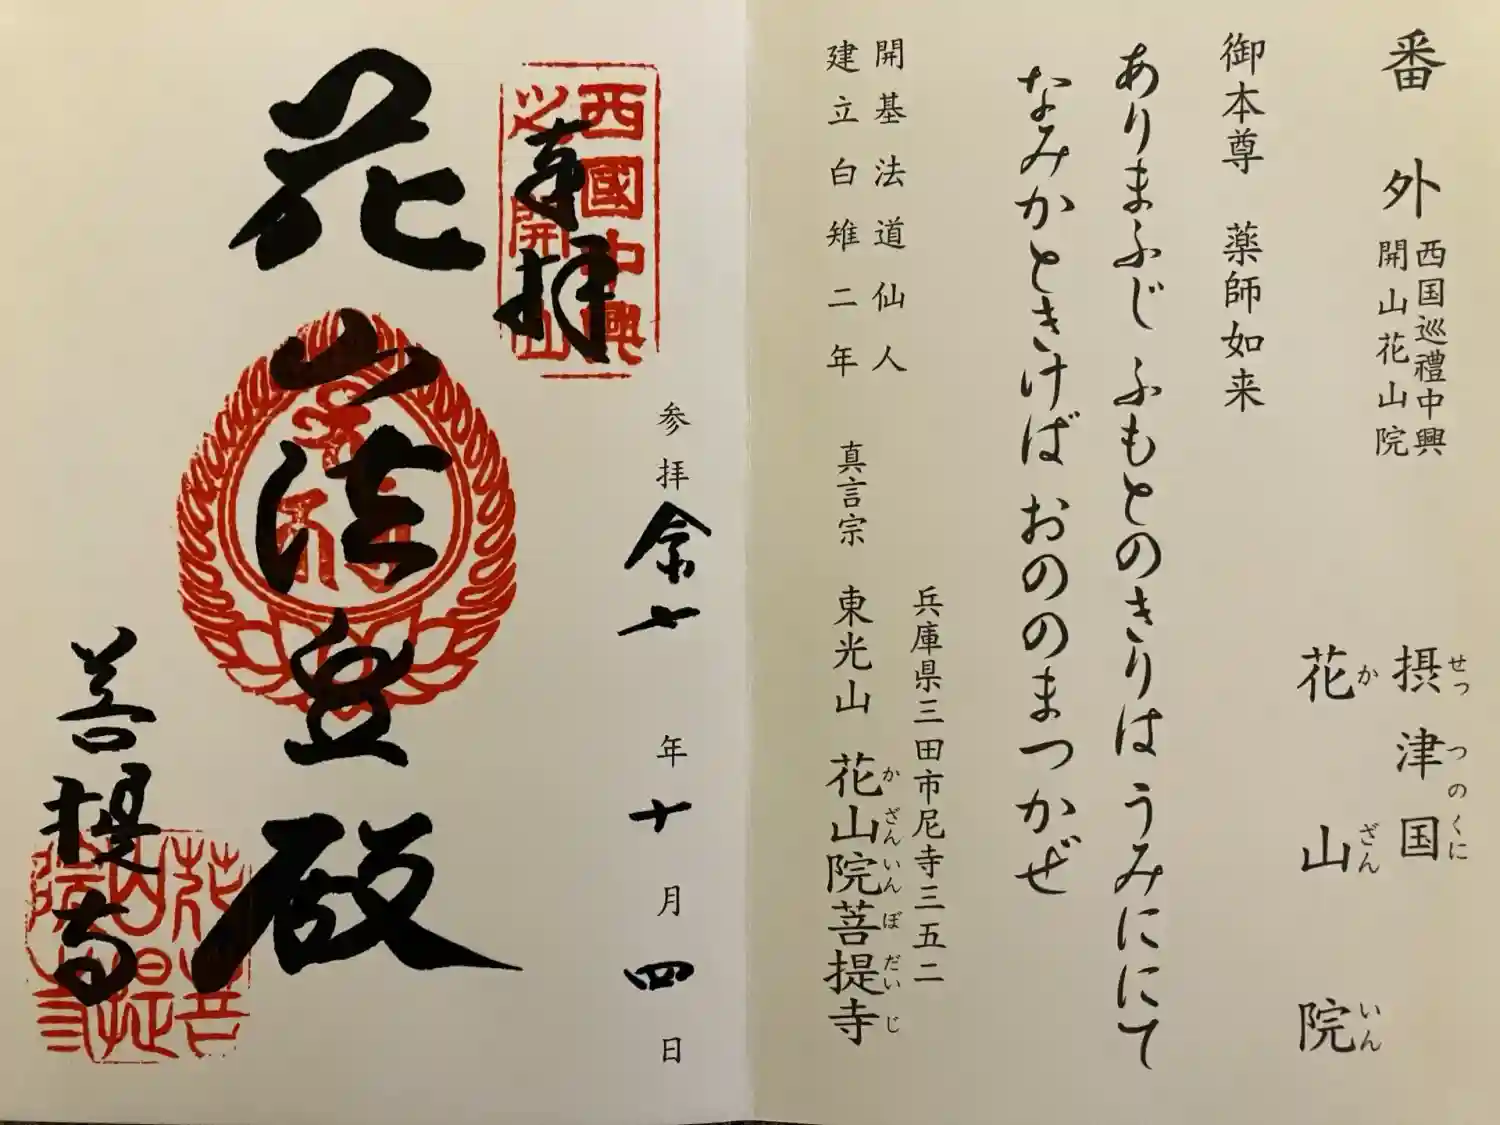 番外
西国巡禮中興
開山花山院
摂津国
せっつのくに
花山院
かざんいん
御本尊 薬師如来
ありまふじ ふもとのきりは うみににて
なみかときけば おののまつかぜ
開基 法道仙人
建立 白雉二年
兵庫県三田市尼寺三五二
真言宗 東光山 花山院菩提寺
かざんいんぼだいじ
西國中興
開山
奉拝
参拝 令七年十月四日
花山法皇殿
菩提寺
花山院菩提寺